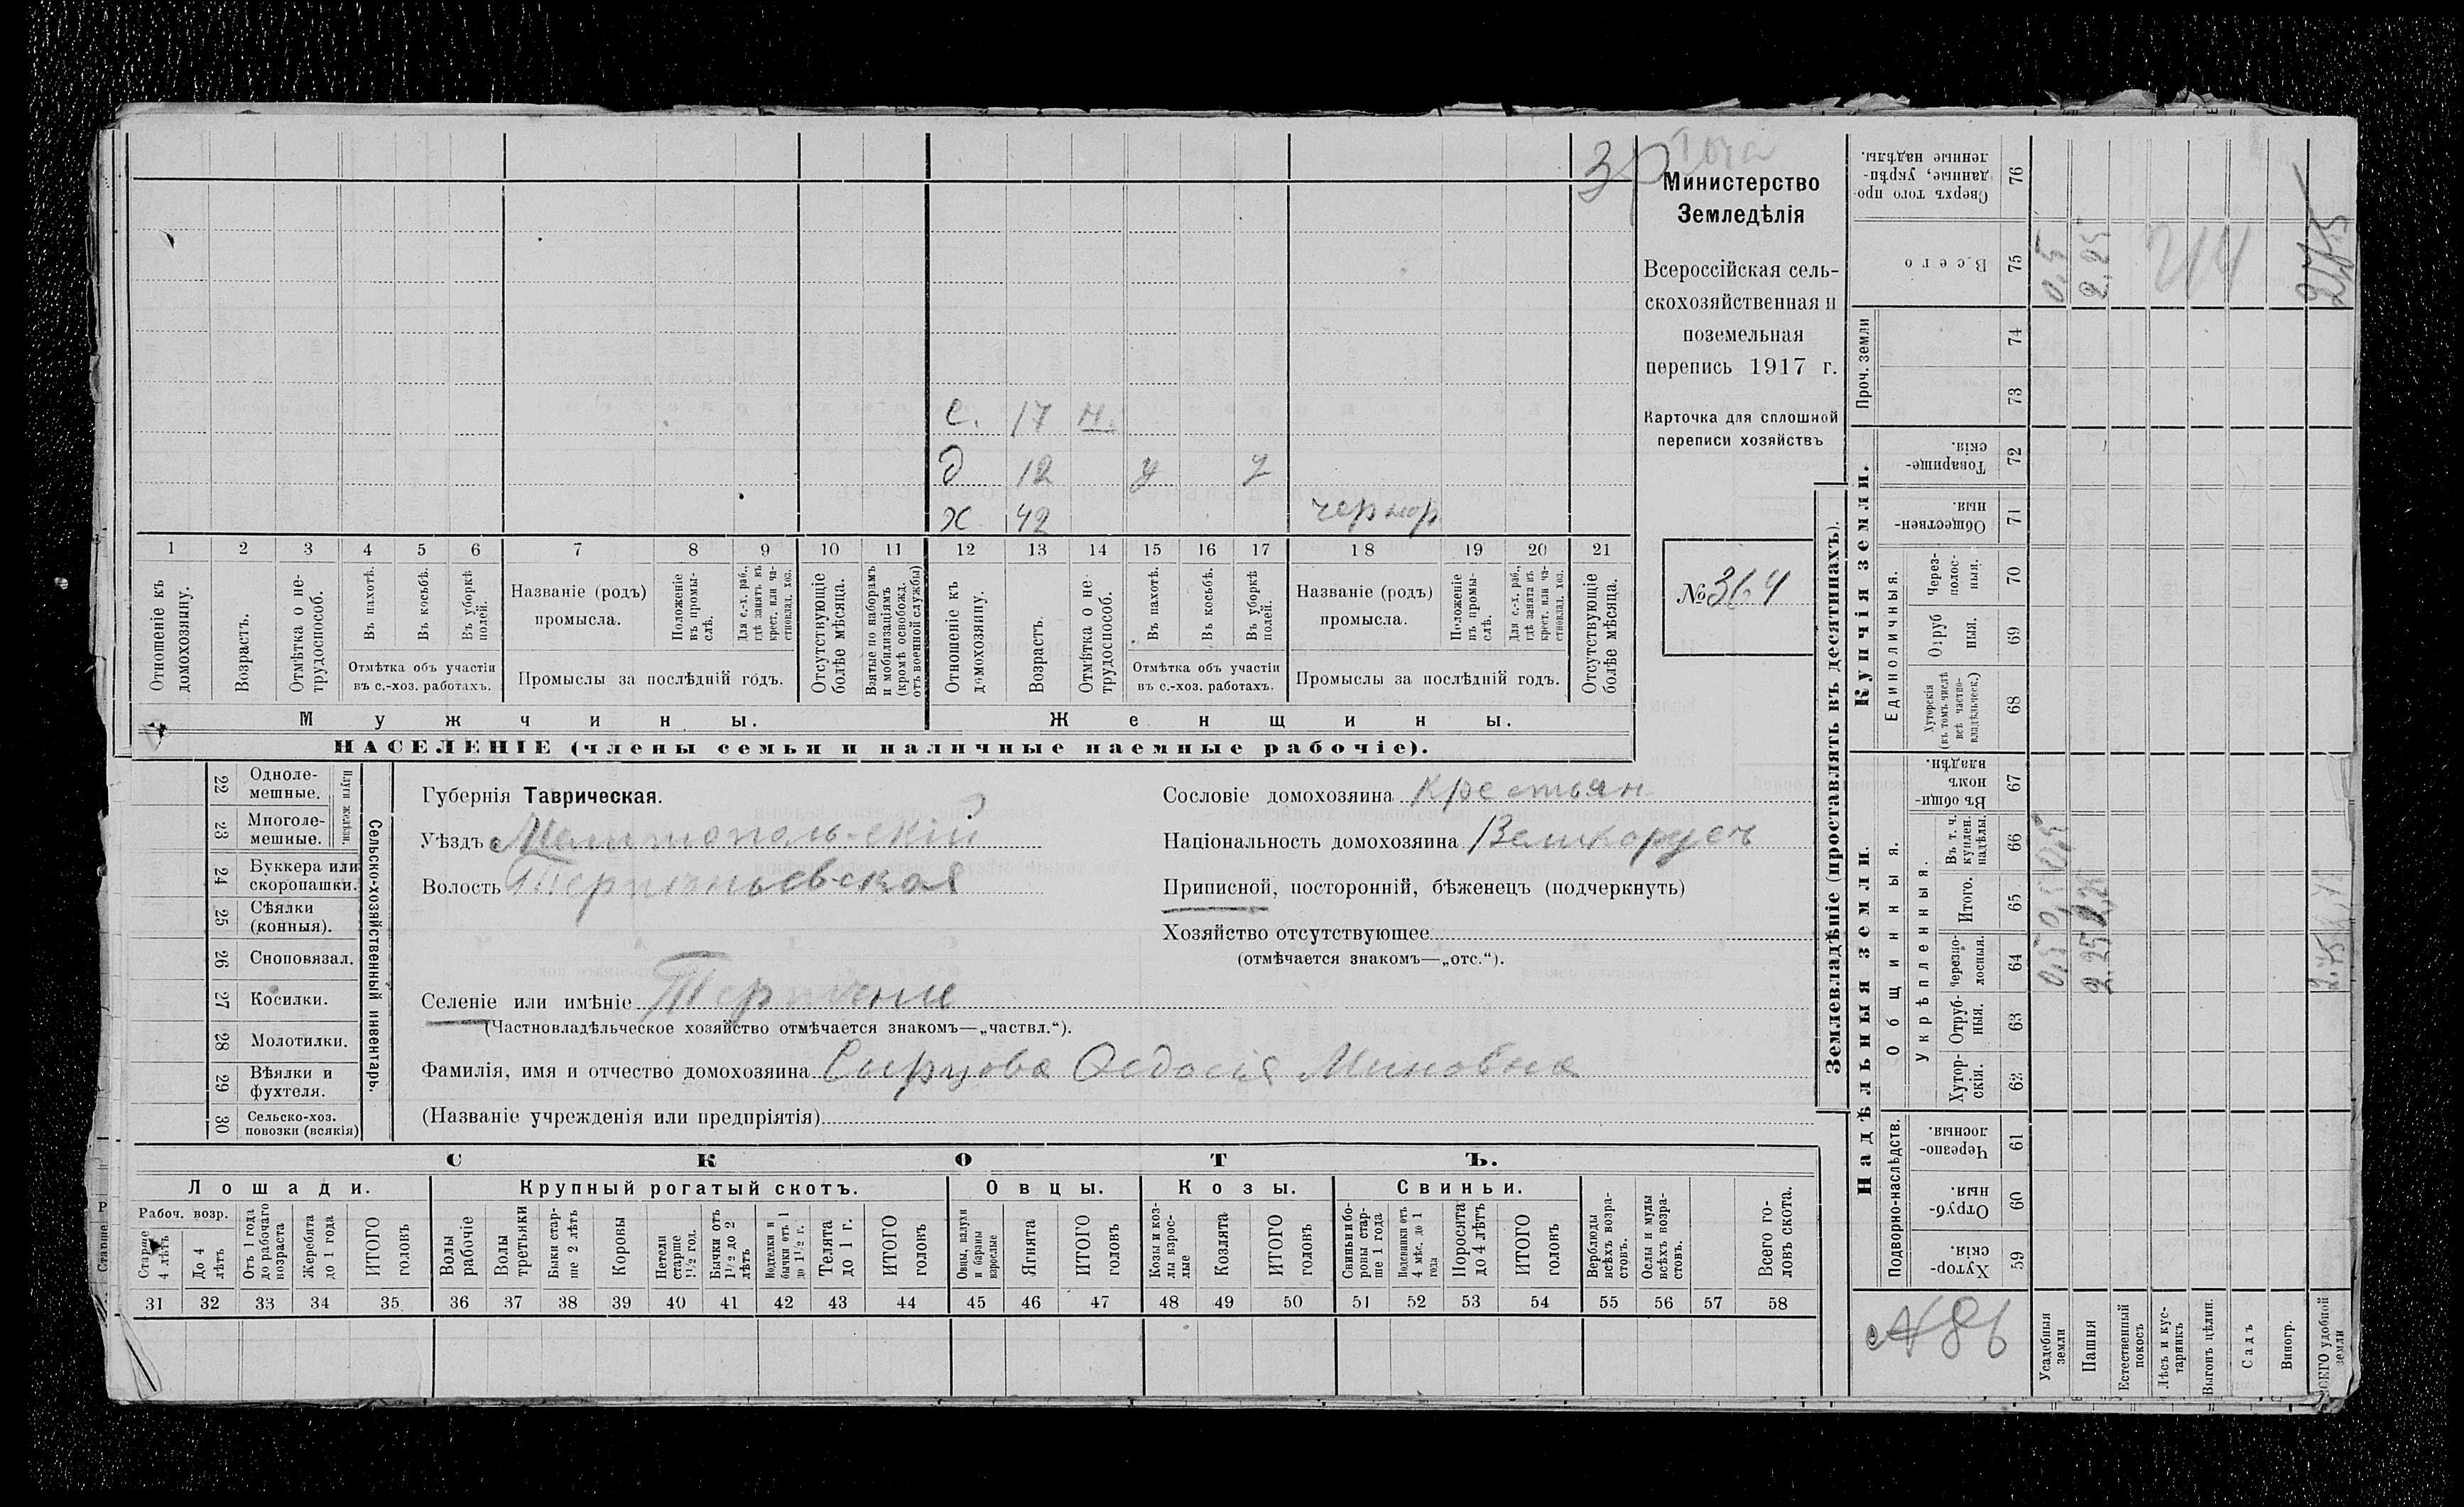 Министерство
Земледѣлія
Всероссійская сель-
скохозяйственная и
поземельная
перепись 1917 г.
Карточка для сплошной
переписи хозяйствъ
№ 364
с. 17 н.
д 12 у у
х 42 чернор
1 2 3 4 5 6 7 8 9 10 11 12 13 14 15 16 17 18 19 20 21
Отношеніе къ домохозяину.
Возрастъ.
Отмѣтка о не-трудоспособ.
Въ пахотѣ.
Въ косьбѣ.
Въ уборкѣ полей.
Отмѣтка объ участіи
въ с.-хоз. работахъ.
Названіе (родъ)
промысла.
Положеніе въ промы-слѣ.
Для с.-х. раб., гдѣ занятъ въ крест. или ча-стновлад. хоз.
Промыслы за послѣдній годъ.
Отсутствующіе болѣе мѣсяца.
Взятые по наборамъ и мобилизаціямъ (кромѣ освобожд. отъ военной службы)
Отношеніе къ домохозяину.
Возрастъ.
Отмѣтка о не-трудоспособ.
Въ пахотѣ.
Въ косьбѣ.
Въ уборкѣ полей.
Отмѣтка объ участіи
въ с.-хоз. работахъ.
Названіе (родъ)
промысла.
Положеніе въ промы-слѣ.
Для с.-х. раб., гдѣ занята въ крест. или ча-стновлад. хоз.
Промыслы за послѣдній годъ.
Отсутствующіе болѣе мѣсяца.
Мужчины.
Женщины.
НАСЕЛЕНІЕ (члены семьи и наличные наемные рабочіе).
Сельско-хозяйственный инвентарь.
Плуги желѣзн.
22 Одноле-мешные.
23 Многоле-мешные.
24 Буккера или скоропашки.
25 Сѣялки (конныя).
26 Сноповязал.
27 Косилки.
28 Молотилки.
29 Вѣялки и фухтеля.
30 Сельско-хоз. повозки (всякія)
Губернія Таврическая.
Уѣздъ Мелитопольскій
Волость Терпѣньевская
Сословіе домохозяина Крестьян
Національность домохозяина Великорусъ
Приписной, посторонній, бѣженецъ (подчеркнуть)
Хозяйство отсутствующее
(отмѣчается знакомъ—„отс.“).
Селеніе или имѣніе Терпѣніе
(Частновладѣльческое хозяйство отмѣчается знакомъ—„частвл.“).
Фамилія, имя и отчество домохозяина Сырцова Ѳедосія Миновна
(Названіе учрежденія или предпріятія)
СКОТЪ.
Лошади. Крупный рогатый скотъ. Овцы. Козы. Свиньи.
Рабоч. возр.
Старше 4 лѣтъ
До 4 лѣтъ
Отъ 1 года до рабочаго возраста
Жеребята до 1 года
ИТОГО головъ
Волы рабочіе
Волы третьяки
Быки стар-ше 2 лѣтъ
Коровы
Нетели старше 1½ год.
Бычки отъ 1½ до 2 лѣтъ
Подтелки и бычки отъ 1 до 1½ г.
Телята до 1 г.
ИТОГО головъ
Овцы, валухи и бараны взрослые
Ягнята
ИТОГО головъ
Козы и коз-лы взрос-лые
Козлята
ИТОГО головъ
Свиньи и бо-ровы стар-ше 1 года
Подсвинки отъ 4 мѣс. до 1 года
Поросята до 4 лѣтъ
ИТОГО головъ
Верблюды всѣхъ возра-стовъ.
Ослы и мулы всѣхъ возра-стовъ.
Всего го-ловъ скота.
31 32 33 34 35 36 37 38 39 40 41 42 43 44 45 46 47 48 49 50 51 52 53 54 55 56 57 58
Землевладѣніе (проставлять въ десятинахъ).
Надѣльныя земли.
Купчія земли.
Проч. земли
Подворно-наслѣдств.
Общинныя.
Укрѣпленныя.
Единоличныя.
76 Сверхъ того про-данные, укрѣп-ленные надѣлы.
75 Всего
74
73
72 Товарище-скія.
71 Обществен-ныя.
70 Через-полос-ныя.
69 Отруб ныя.
68 Хуторскія (въ томъ числѣ всѣ частно-владѣльческ.)
67 Въ общи-номъ владѣн.
66 Въ т. ч. куплен. надѣлы.
65 Итого.
64 Черезпо-лосныя.
63 Отруб-ныя.
62 Хутор-скія.
61 Черезпо-лосныя.
60 Отруб-ныя.
59 Хутор-скія.
№ 86
Усадебныя земли
Пашня
Естественный покосъ
Лѣсъ и кус-тарникъ
Выгонъ цѣлин.
Садъ
Виногр.
ВСЕГО удобной земли
0,5
2.25
0,5 0,5 0,5
2.25
2.75